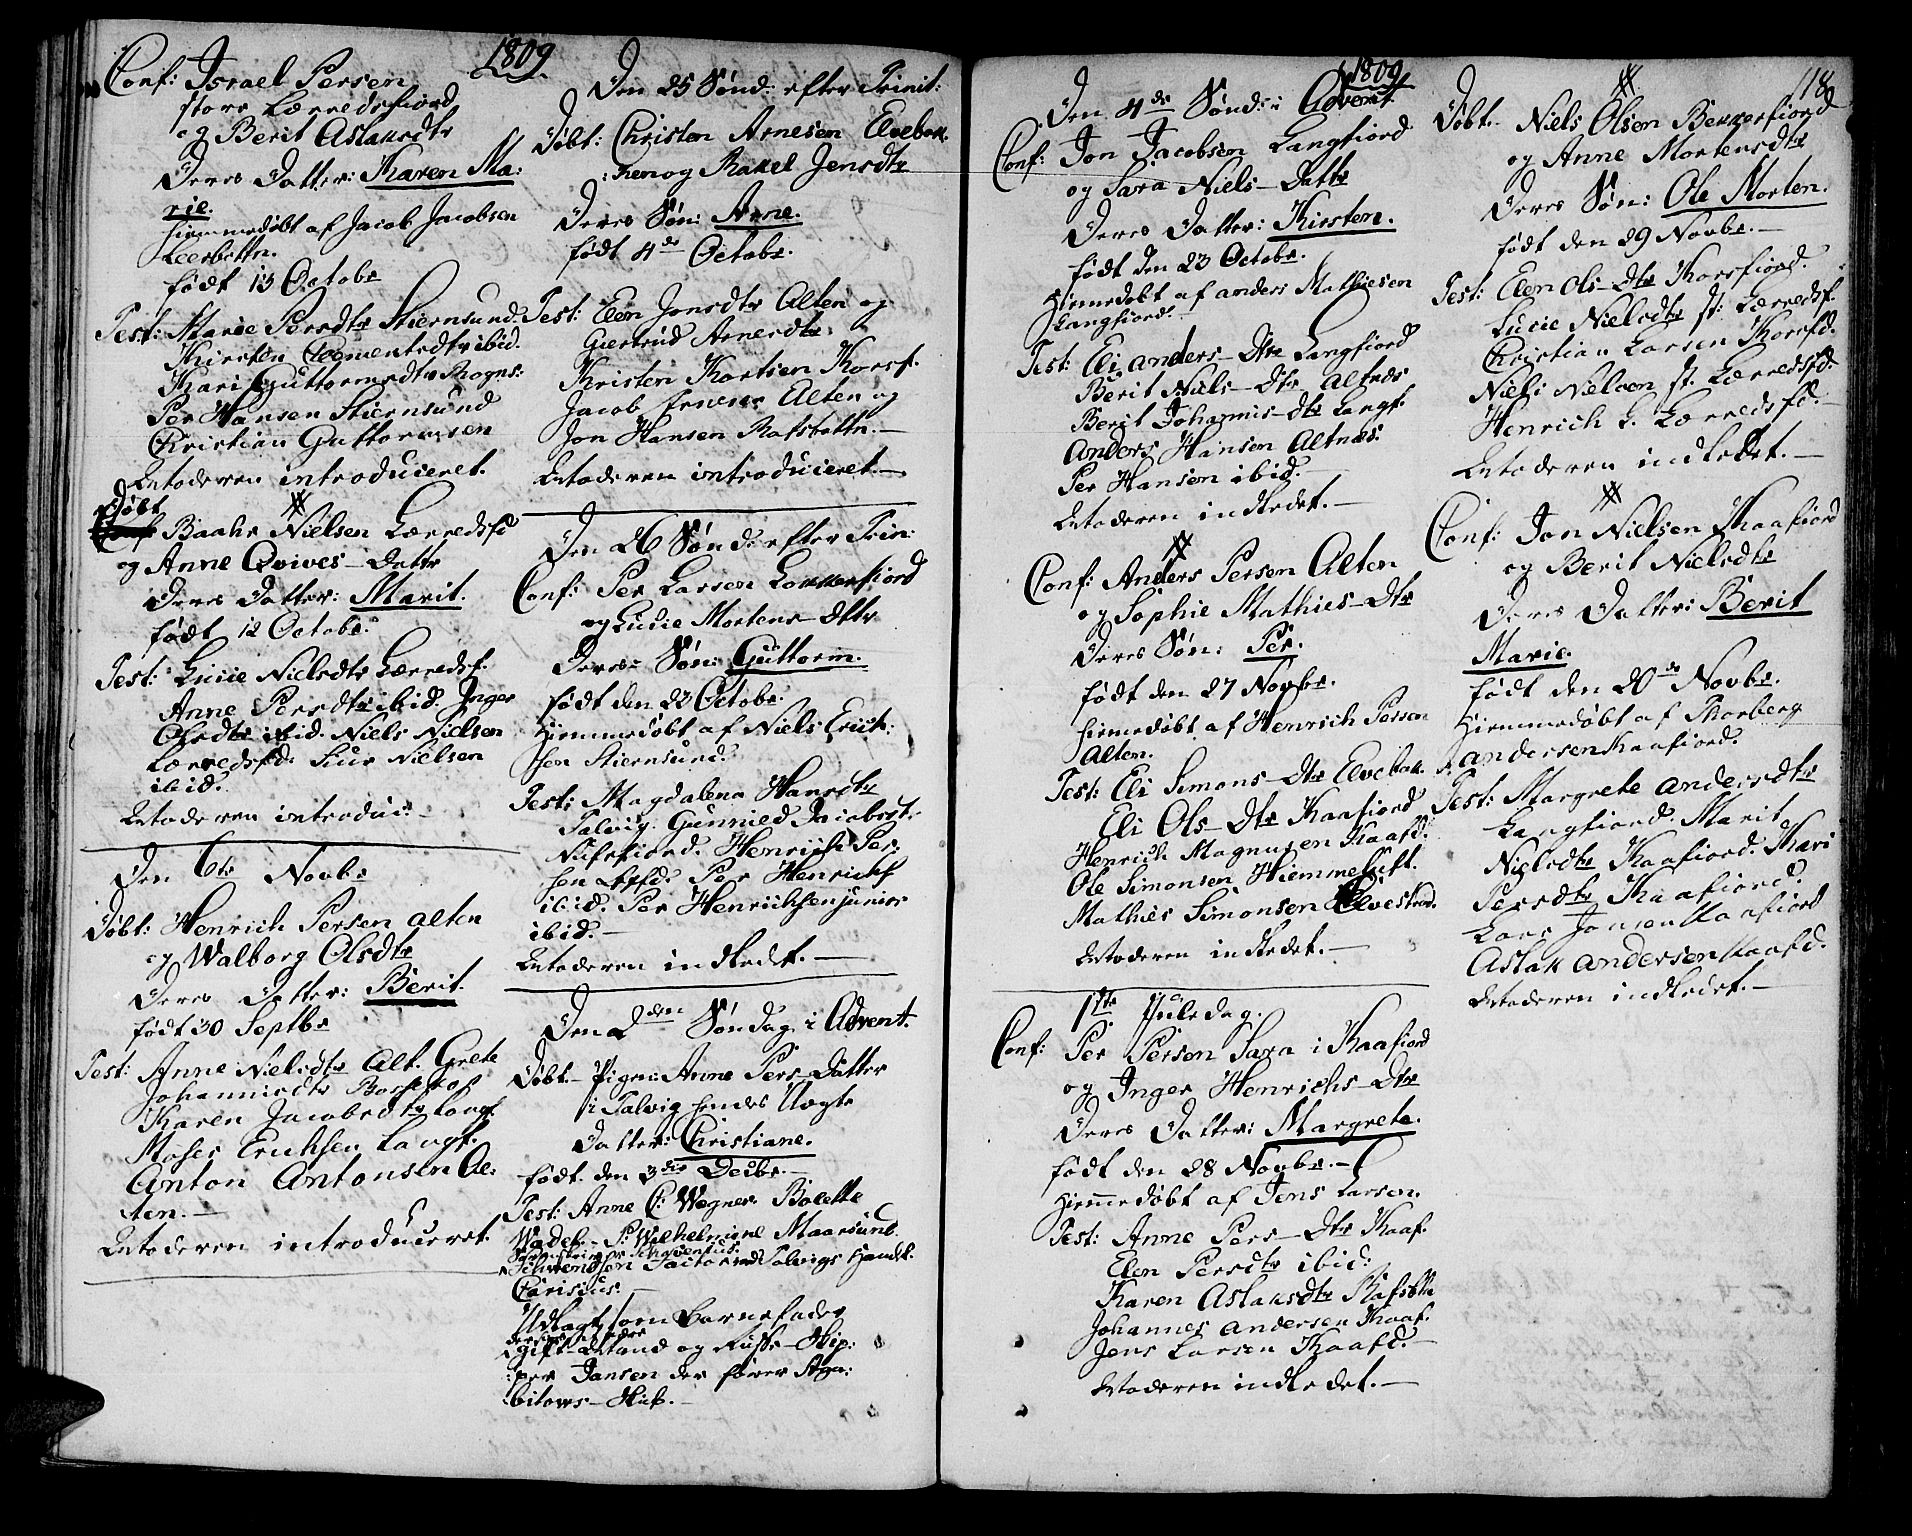 1809
Conf: Israel Persen
store Lærredsfiord
og Berit Aslaksdtr
Deres Datter: Karen Ma:
rie.
hiemmedøbt af Jacob Jacobsen
Leerbottn.
født 13 Octobr
Test: Marie Persdtr Stiernsund.
Kirsten Clementsdtr ibid.
Kari Guttormsdtr Rogns:
Per Hansen Stiernsund
Christian Guttormsen
Moderen introduceret.
Døbt
Baahr Nielsen Lærredsfd
og Anne Qvives-Dattr
Deres Datter: Marit.
født 12 Octobr.
Test: Lucie Nielsdtr Lærredsf.
Anne Persdtr ibid. Inger
Olsdtr ibid. Niels Nielsen
Lærredsfd. Siur Nielsen
ibid.
Moderen introduc:
Den 6te Novbr
Døbt: Henrich Persen Alten
og Walborg Olsdtr
Deres Datter: Berit.
født 30 Septbr
Test: Anne Nielsdtr Alt. Grete
Johannisdtr Bosekop
Karen Jacobsdtr Langf.
Moses Erichsen Langf.
Anton Antonsen Al:
ten.
Moderen introduceret.
Den 25 Sønd: efter Trinit:
Døbt: Christen Arnesen Elvebak:
ken og Rakel Jensdtr
Deres Søn: Arne.
født 4de Octobr.
Test: Elen Jonsdtr Alten og
Giertrud Arnesdtr
Kristen Kortsen Korsf.
Jacob Alten og
Jon Hansen Rafsbottn.
Moderen introduceret.
Den 26 Sønd: efter Trin:
Conf: Per Larsen Lokkerfiord
og Lucie Mortens-Dttr
Deres Søn: Guttorm.
født den 23 Octobr.
Hiemmedøbt af Niels Erich:
sen Stiernsund.
Test: Magdalena Hansdtr
Talvig. Gunnild Jacobsdt.
Nufsfiord. Henrich Per:
sen Lgfd. Per Henrichs
ibid. Per Henrichsen junior
ibid.
Moderen indledt.
Den 2den Søndag i Advent.
Døbt. Pigen Anne Pers-Datter
i Talvig hendes Uægte
Datter: Christiane.
født den 3die Decbr.
Test: Anne C: Wegner Bolette
Wadel. S: Wilhelmine Maarsund
Schwendsen Factor ved Talvigs Handl.
Clarisius.
Udlagt som Barnefader
gift Mand og Russe-Skip:
per Jansen der fører Aga:
bitows-Skib.
1809
Den 4de Sønd: i Advent.
Conf: Jon Jacobsen Langfiord
og Sara Niels-Dattr
Deres Datter: Kirsten.
født den 23 Octobr.
Hiemedøbt af Anders Mathiesen
Langfiord.
Test: Eli Anders-Dtr Langfiord
Berit Niels-Dtr Altnes
Berit Johannis-Dtr Langf.
Anders Hansen Altnæs.
Per Hansen ibid.
Moderen indledet.
Conf: Anders Persen Alten
og Sophie Mathies-Dtr
Deres Søn: Per.
født den 27 Novbr.
hiemedøbt af Henrich Persen
Alten.
Test: Eli Simons-Dtr Elvebak.
Eli Ols-Dtr Kaafiord
Henrich Magnusen Kaafd.
Ole Simonsen Hiemmeluft.
Mathies Simonsen Elvestrand.
Moderen indledet.
1ste Juledag.
Conf: Per Persen Sara i Kaafiord
og Inger Henrichs-Dtr
Deres Datter: Margrete.
født den 28 Novbr.
Hiemedøbt af Jens Larsen.
Test: Anne Pers-Dtr Kaaf.
Elen Persdtr ibid:
Karen Aslaksdtr Rafsbtn
Johannes Andersen Kaaf.
Jens Larsen Kaafd.
Moderen indledet.
118
Døbt. Niels Olsen Bekkerfiord
og Anne Mortensdtr
Deres Søn: Ole Morten.
født den 29 Novbr.
Test: Elen Ols-Dtr Korsfiord.
Lucie Nielsdtr st: Lærredsf.
Christian Larsen Korsfd.
Niels Nielsen st. Lærredsfd.
Henrich L. Lærredsfd.
Moderen indledet.
Conf: Jon Nielsen Kaafiord
og Berit Nielsdtr
Deres Datter: Berit
Marie.
født den 20de Novbr.
Hiemmedøbt af Thorberg
Andersen Kaafiord.
Test: Margrete Andersdtr
Langfiord. Marit
Nielsdtr Kaafiord. Kari
Persdtr Kaafiord.
Lars Jonsen Kaafiord
Aslak Andersen Kaafd.
Moderen indledet.